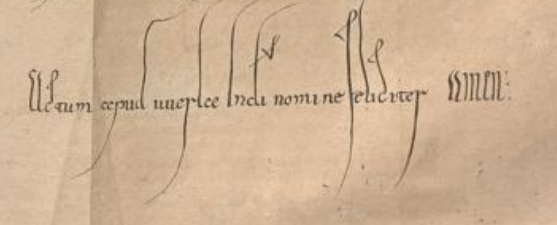 Actum apud uuerlae In di nomine feliciter amen: